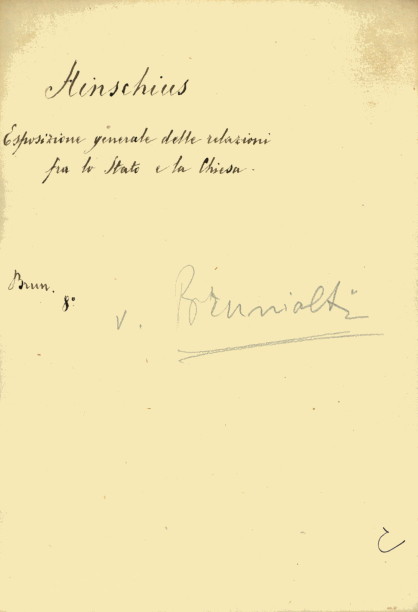 Hinschius
Esposizione generale delle relazioni
fra lo Stato e la Chiesa.
Brun.
8°
v. Brunialti